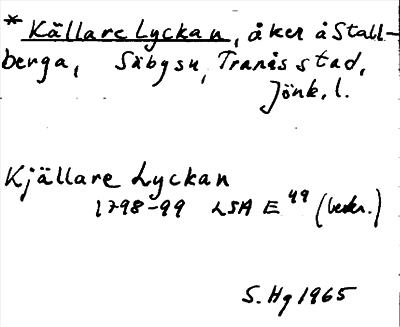 * Källare Lyckan, åker å Stall-
berga, Säby sn, Tranås stad,
Jönk. l.
Kjällare Lyckan
1798-99 LSA E 49 (beskr.)
S. Hg 1965